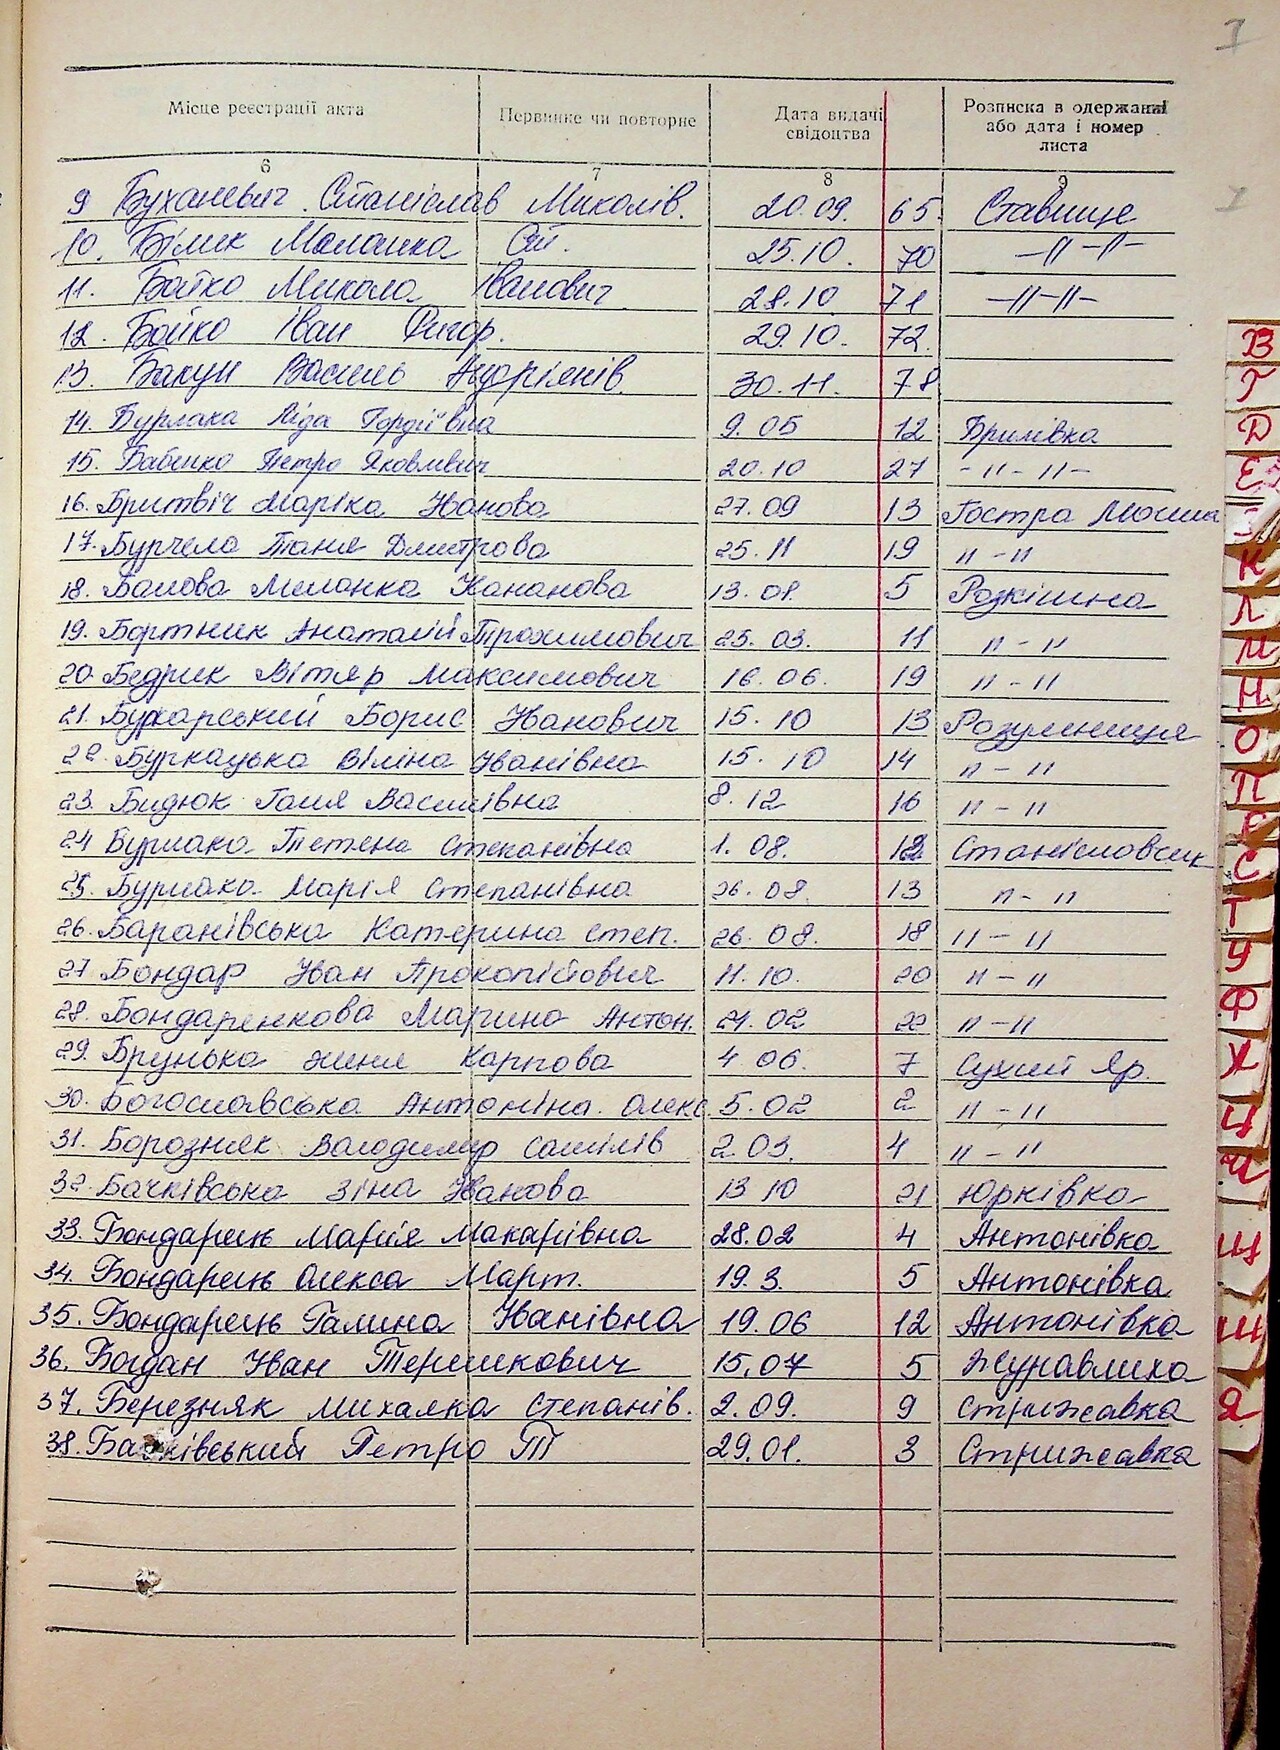 1
Місце реєстрації акта Первинне чи повторне Дата видачі свідоцтва Розписка в одержанні або дата і номер листа
6 7 8 9
9 Буханевич Станіслав Миколів. 20.09. 65. Ставище
1
10. Білик Меланка Ст. 25.10. 70 -//-//-
11. Бойко Микола Іванович 28.10 71 -//-//-
12. Бойко Іван Григор. 29.10. 72.
13. Бакун Василь Андріянів. 30.11. 78
14. Бурлака Ліда Гордіївна 9.05 12 Бримівка
15. Бабенко Петро Яковлевич 20.10 27 -"-"-
16. Бритвіч Маріка Иванова 27.09 13 Гостра Могила
17. Бурчела Таня Дмитрова 25.11 19 "-"
18. Балова Меланка Кананова 13.08 5 Розкішна
19. Бортник Анатолій Трохимович 25.03. 11 "-"
20. Бедрик Вітяр Максимович 16.06. 19 "-"
21. Бухарський Борис Иванович 15.10 13 Розумниця
22. Буркацька Віліна Иванівна 15.10 14 "-"
23. Бидюк Галя Василівна 8.12 16 "-"
24 Бурлака Тетена Степанівна 1.08. 12 Станіславчик
25. Бурлака Марія Степанівна 26.08. 13 "-"
26. Баранівська Катерина Степ. 26.08. 18 "-"
27 Бондар Иван Прокопійович 11.10. 20 "-"
28. Бондаренкова Марина Антон. 21.02 22 "-"
29. Брунька Женя Карпова 4.06. 7 Сухий Яр.
30. Богославська Антоніна Олекс 5.02 2 "-"
31. Борозняк Володимир Самілів 2.03. 4 "-"
32. Бачківська Зіна Иванова 13 10 21 Юрківка
33. Бондарець Марія Макарівна 28.02 4 Антонівка
34. Бондарець Олекса Март. 19.3. 5 Антонівка
35. Бондарець Галина Иванівна 19.06 12 Антонівка
36. Богдан Иван Терешкович 15.07 5 Журавлиха
37. Березняк Михалка Степанів. 2.09. 9 Стрижавка
38. Бачківський Петро Т 29.01. 3 Стрижавка
В
Г
Д
Е
З
К
Л
М
Н
О
П
Р
С
Т
У
Ф
Х
Ц
Ч
Ш
Щ
Я